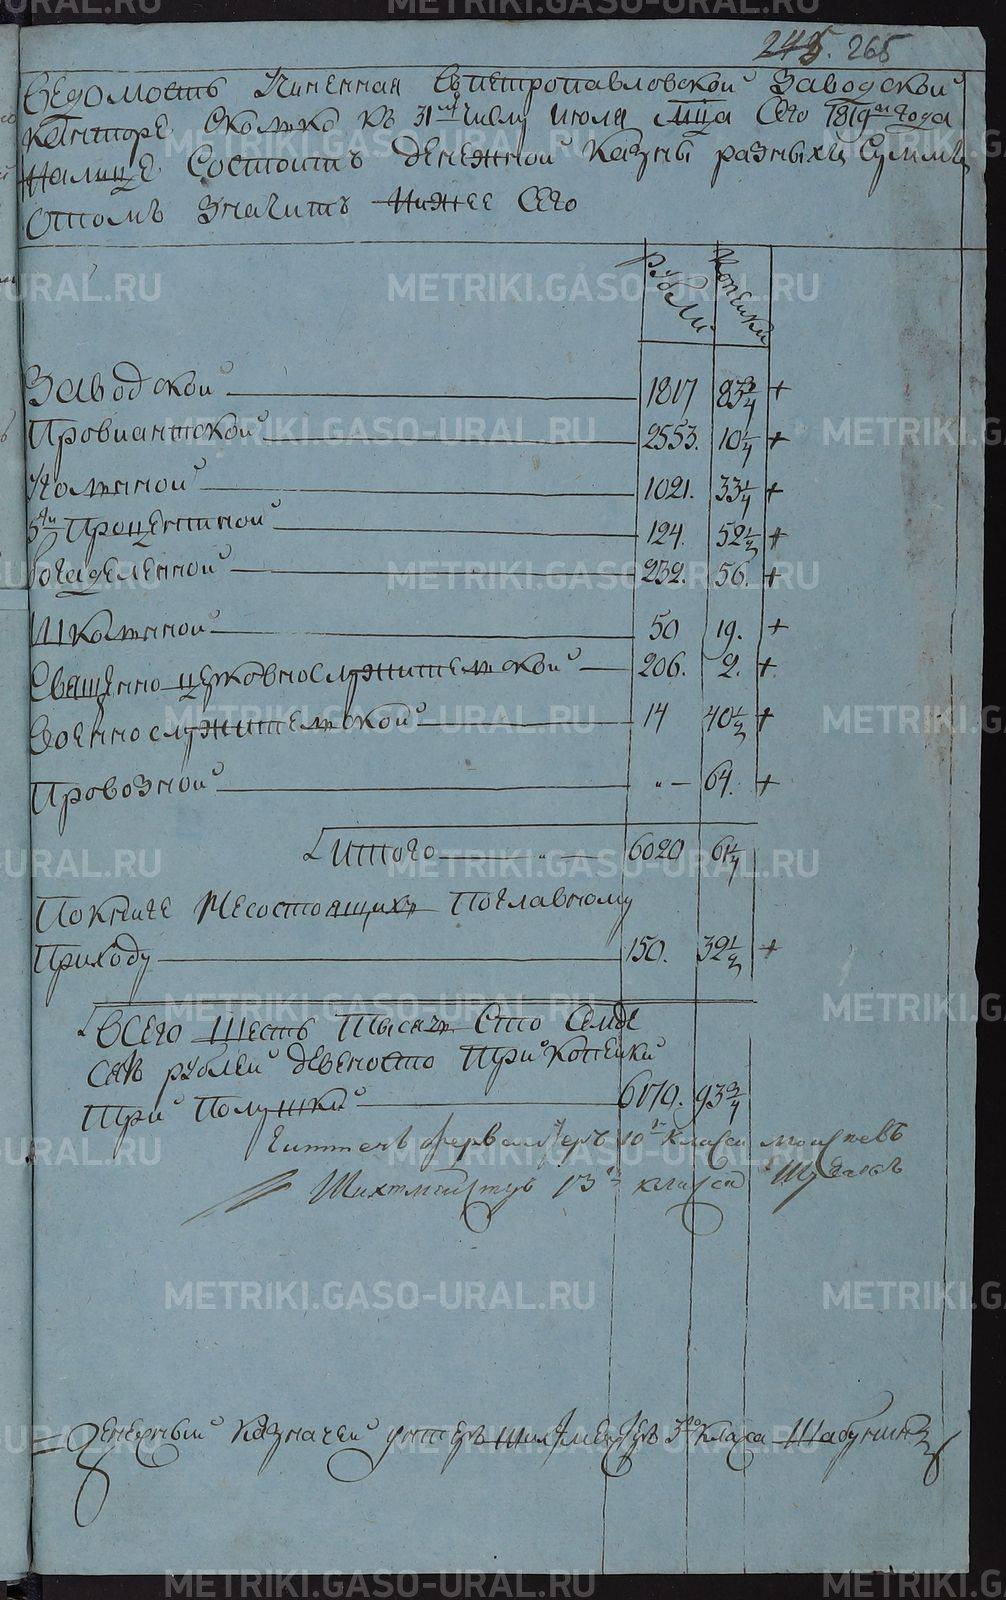 245. 265
Ведомость Учиненная Впетропавловской Заводской
канторе Сколко къ 31му числу июля мца Сего 1819го года
Налице Состоитъ денежной казны разныхъ Суммъ
Отомъ Значитъ Ниже Сего
рубли копейки
Заводской 1817 83 3/4 +
Провиантской 2553. 10 1/4 +
1021. 33 1/4 +
5ти Процентной 124. 52 1/2 +
232. 56. +
Школьной 50 19. +
Священно церковнослужительской 206. 2. +
Военнослужительской 14 40 1/2 +
Провозной „ — 64. +
Итого 6020 61 1/4
Покниге Несостоящихъ Поглавному
Приходу 150. 32 1/2 +
Всего Шесть Тысячъ Сто Семде
сятъ рублей девеносто Три копейки
Три Полушки 6170. 93 3/4
Гиттенъ фервалтеръ 10го класса
Шихтмейстеръ 13го класса
Денежный казначей унтеръ шихтмейстеръ 3го класа Шабунинъ
METRIKI.GASO-URAL.RU